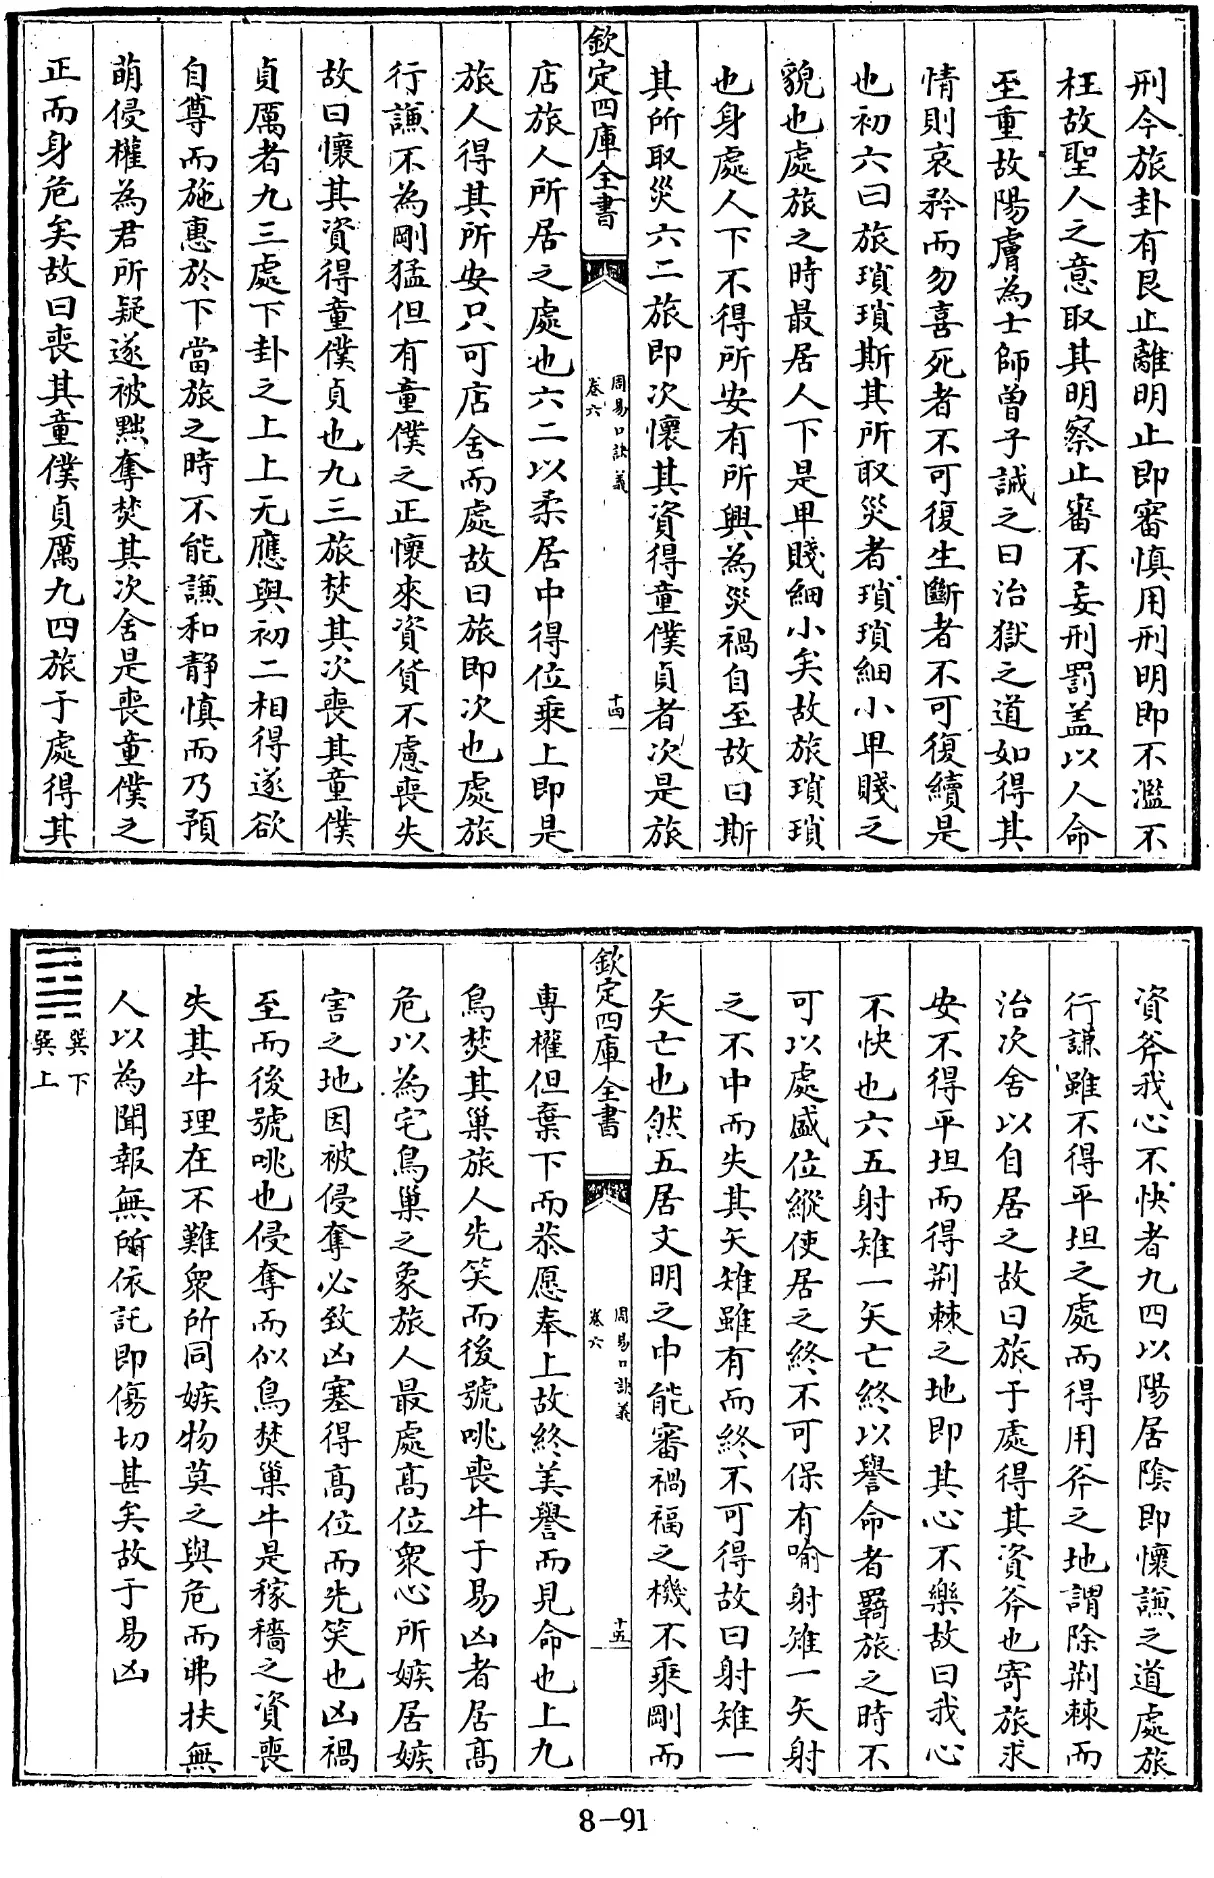 刑今旅卦有艮止離明止即審慎用刑明即不濫不
枉故聖人之意取其明察止審不妄刑罰盖以人命
至重故陽膚為士師曾子誡之曰治獄之道如得其
情則哀矜而勿喜死者不可復生斷者不可復續是
也初六曰旅瑣瑣斯其所取災者瑣瑣細小卑賤之
貌也處旅之時最居人下是卑賤細小矣故旅瑣瑣
也身處人下不得所安有所興為災禍自至故曰斯
其所取災六二旅即次懷其資得童僕貞者次是旅
欽定四庫全書
周易口訣義
卷六
十四
店旅人所居之處也六二以柔居中得位乗上即是
旅人得其所安只可店舍而處故曰旅即次也處旅
行謙不為剛猛但有童僕之正懷來資貨不慮喪失
故曰懷其資得童僕貞也九三旅焚其次喪其童僕
貞厲者九三處下卦之上上无應與初二相得遂欲
自尊而施惠於下當旅之時不能謙和靜慎而乃預
萌侵權為君所疑遂被黜奪焚其次舍是喪童僕之
正而身危矣故曰喪其童僕貞厲九四旅于處得其
資斧我心不快者九四以陽居隂即懷謙之道處旅
行謙雖不得平坦之處而得用斧之地謂除荆棘而
治次舍以自居之故曰旅于處得其資斧也寄旅求
安不得平坦而得荆棘之地即其心不樂故曰我心
不快也六五射雉一矢亡終以譽命者羇旅之時不
可以處盛位縱使居之終不可保有喻射雉一矢射
之不中而失其矢雉雖有而終不可得故曰射雉一
矢亡也然五居文明之中能審禍福之機不乗剛而
欽定四庫全書
周易口訣義
卷六
十五
專權但棄下而恭愿奉上故終美譽而見命也上九
鳥焚其巢旅人先笑而後號咷喪牛于易凶者居髙
危以為宅鳥巢之象旅人最處髙位衆心所嫉居嫉
害之地因被侵奪必致凶塞得髙位而先笑也凶禍
至而後號咷也侵奪而似鳥焚巢牛是稼穡之資喪
失其牛理在不難衆所同嫉物莫之與危而弗扶無
人以為聞報無所依託即傷切甚矣故于易凶
巽下
巽上
8-91